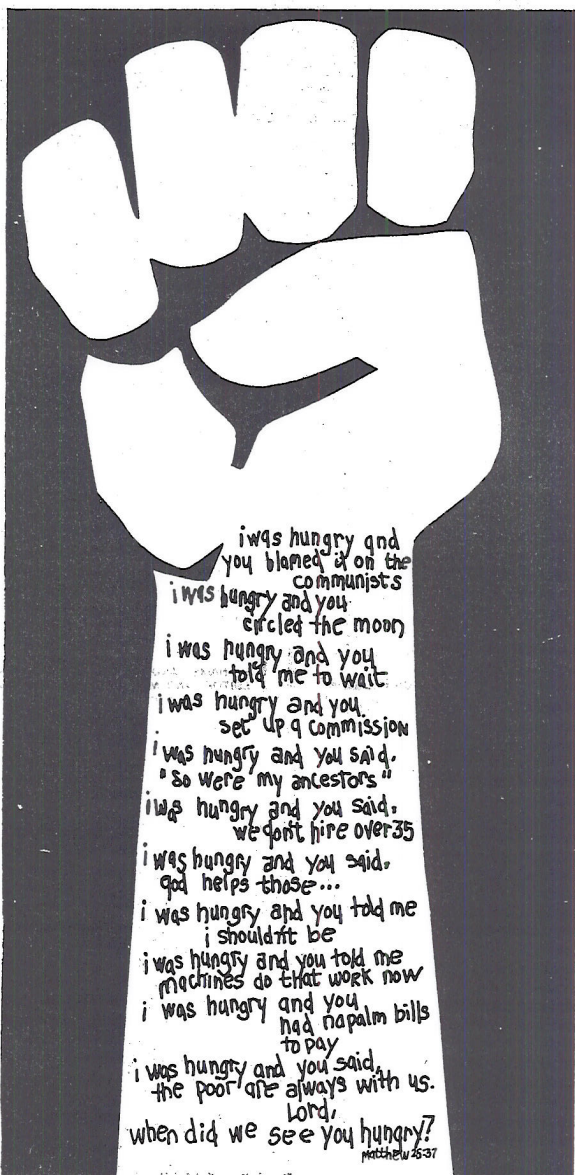 i was hungry and
you blamed it on the
communists
i was hungry and you
circled the moon
i was hungry and you
told me to wait
i was hungry and you
set up a commission
i was hungry and you said,
"so were my ancestors"
i was hungry and you said,
we don't hire over 35
i was hungry and you said,
god helps those...
i was hungry and you told me
i shouldn't be
i was hungry and you told me
machines do that work now
i was hungry and you
had napalm bills
to pay
i was hungry and you said,
the poor are always with us.
Lord,
when did we see you hungry?
Matthew 25:37